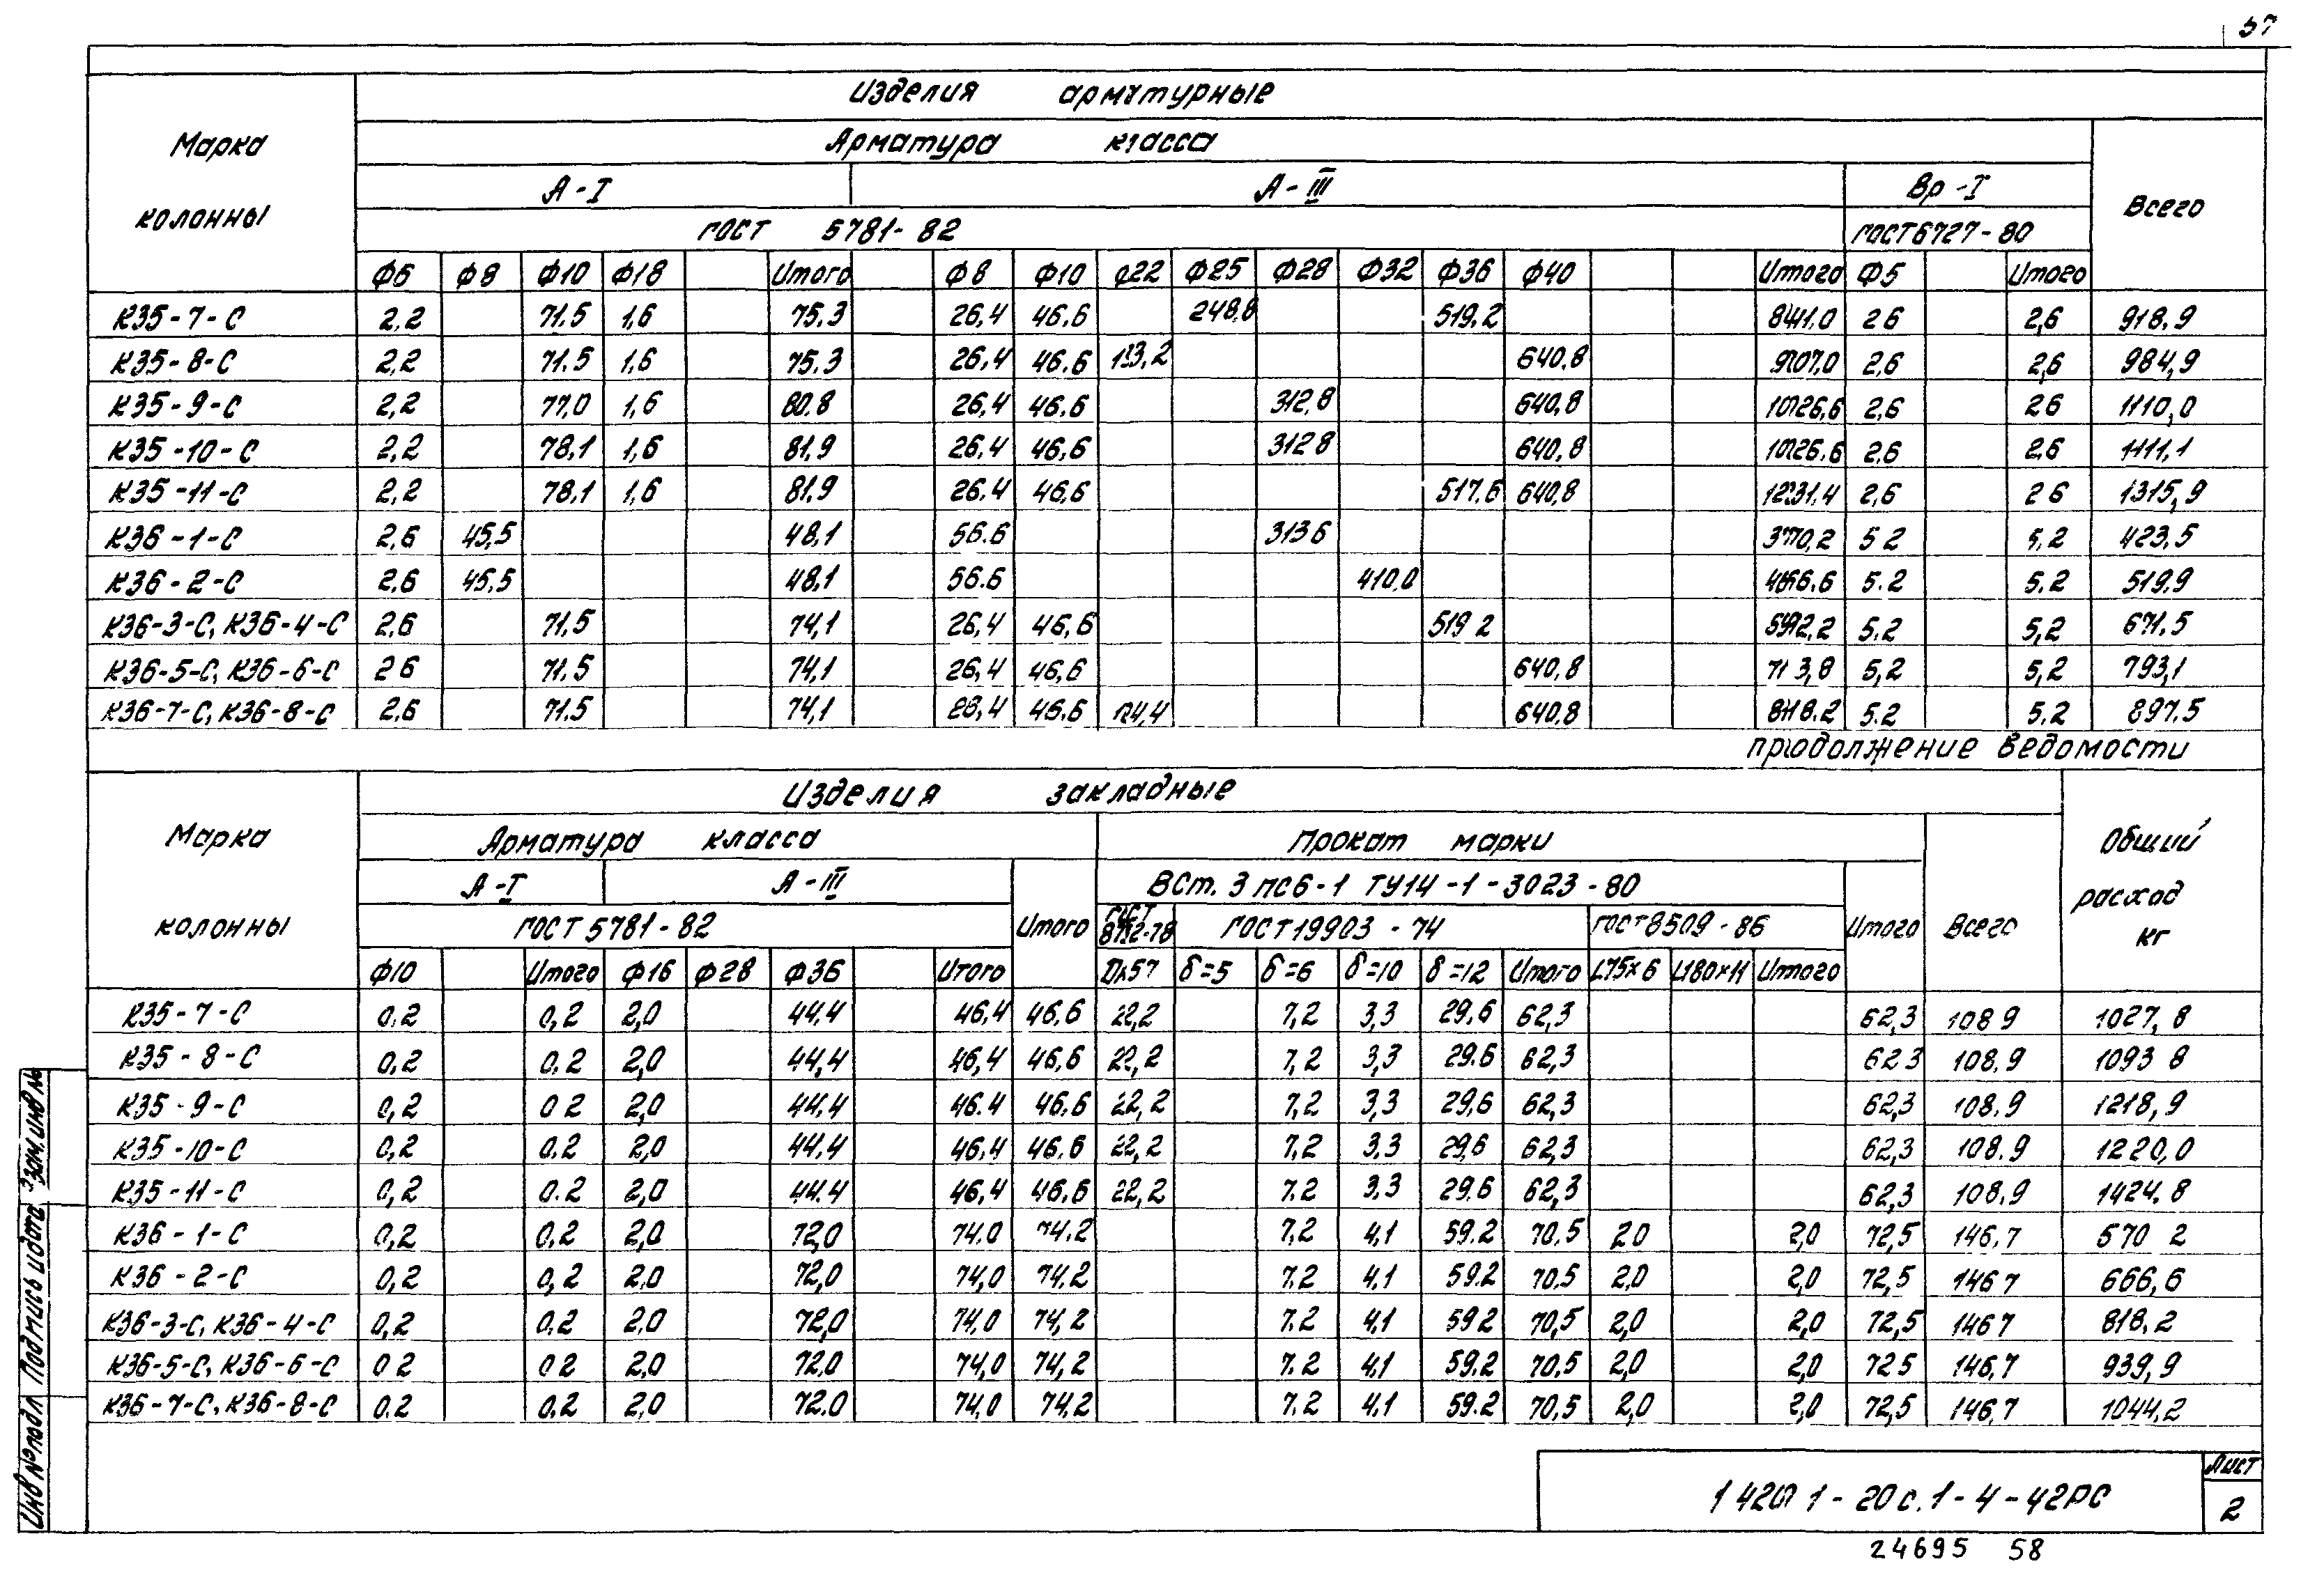 57
Изделия арматурные
Марка колонны
Арматура класса
Всего
А-I А-III Вр-I
ГОСТ 5781-82 ГОСТ 6727-80
Ф6 Ф8 Ф10 Ф18 Итого Ф8 Ф10 Ф22 Ф25 Ф28 Ф32 Ф36 Ф40 Итого Ф5 Итого
К35-7-С 2,2 71.5 1,6 75,3 26,4 46,6 248,8 519,2 841,0 2 6 2,6 918,9
К35-8-С 2,2 71.5 1,6 75.3 26,4 46.6 193,2 640,8 907,0 2,6 2,6 984,9
К35-9-С 2,2 77,0 1,6 80.8 26,4 46,6 312,8 640,8 1026,6 2,6 2 6 1110,0
К35-10-С 2,2 78,1 1,6 81,9 26,4 46,6 312 8 640,8 1026,6 2,6 2,6 1111,1
К35-11-С 2,2 78,1 1,6 81,9 26,4 46,6 517,6 640,8 1231,4 2,6 2 6 1315,9
К36-1-С 2,6 45,5 48,1 56.6 313 6 370,2 5 2 5,2 423,5
К36-2-С 2,6 45,5 48,1 56.6 410,0 466.6 5.2 5,2 519,9
К36-3-С, К36-4-С 2,6 71,5 74,1 26,4 46,6 519 2 592,2 5.2 5,2 671,5
К36-5-С, К36-6-С 2 6 71.5 74,1 26,4 46,6 640,8 713,8 5,2 5,2 793,1
К36-7-С, К36-8-С 2,6 71.5 74,1 26,4 46,6 104,4 640,8 818.2 5.2 5,2 897,5
продолжение ведомости
Изделия закладные
Марка колонны
Арматура класса Прокат марки
Общий расход кг
А-I А-III ВСт.3пс6-1 ТУ14-1-3023-80
ГОСТ 5781-82 Итого ГОСТ 8732-78 ГОСТ 19903-74 ГОСТ 8509-86 Итого Всего
Ф10 Итого Ф16 Ф28 Ф36 Итого Дн57 δ=5 δ=6 δ=10 δ=12 Итого L75×6 L180×11 Итого
К35-7-С 0,2 0,2 2,0 44,4 46,4 46,6 22,2 7,2 3,3 29,6 62,3 62,3 108 9 1027,8
К35-8-С 0,2 0,2 2,0 44,4 46,4 46,6 22,2 7,2 3,3 29.6 62,3 62 3 108,9 1093 8
К35-9-С 0,2 0 2 2,0 44,4 46.4 46,6 22,2 7,2 3,3 29,6 62,3 62,3 108,9 1218,9
К35-10-С 0,2 0.2 2,0 44,4 46,4 46,6 22,2 7,2 3,3 29,6 62,3 62,3 108.9 1220,0
К35-11-С 0,2 0.2 2,0 44.4 46,4 46,6 22,2 7.2 3,3 29.6 62,3 62,3 108,9 1424,8
К36-1-С 0,2 0,2 2,0 72,0 74.0 74,2 7,2 4,1 59.2 70,5 2 0 2,0 72,5 146,7 570 2
К36-2-С 0,2 0,2 2,0 72,0 74,0 74,2 7.2 4,1 59.2 70.5 2,0 2,0 72,5 146 7 666,6
К36-3-С, К36-4-С 0,2 0,2 2,0 72,0 74,0 74,2 7.2 4,1 59 2 70,5 2,0 2,0 72,5 146 7 818,2
К36-5-С, К36-6-С 0 2 0 2 2,0 72,0 74,0 74,2 7.2 4,1 59.2 70,5 2,0 2,0 72 5 146,7 939,9
К36-7-С, К36-8-С 0.2 0,2 2,0 72.0 74,0 74,2 7.2 4,1 59.2 70,5 2,0 2,0 72,5 146,7 1044,2
Инв № подл Подпись и дата Взам.инв №
1 420.1-20с.1-4-42РС
Лист
2
24695 58